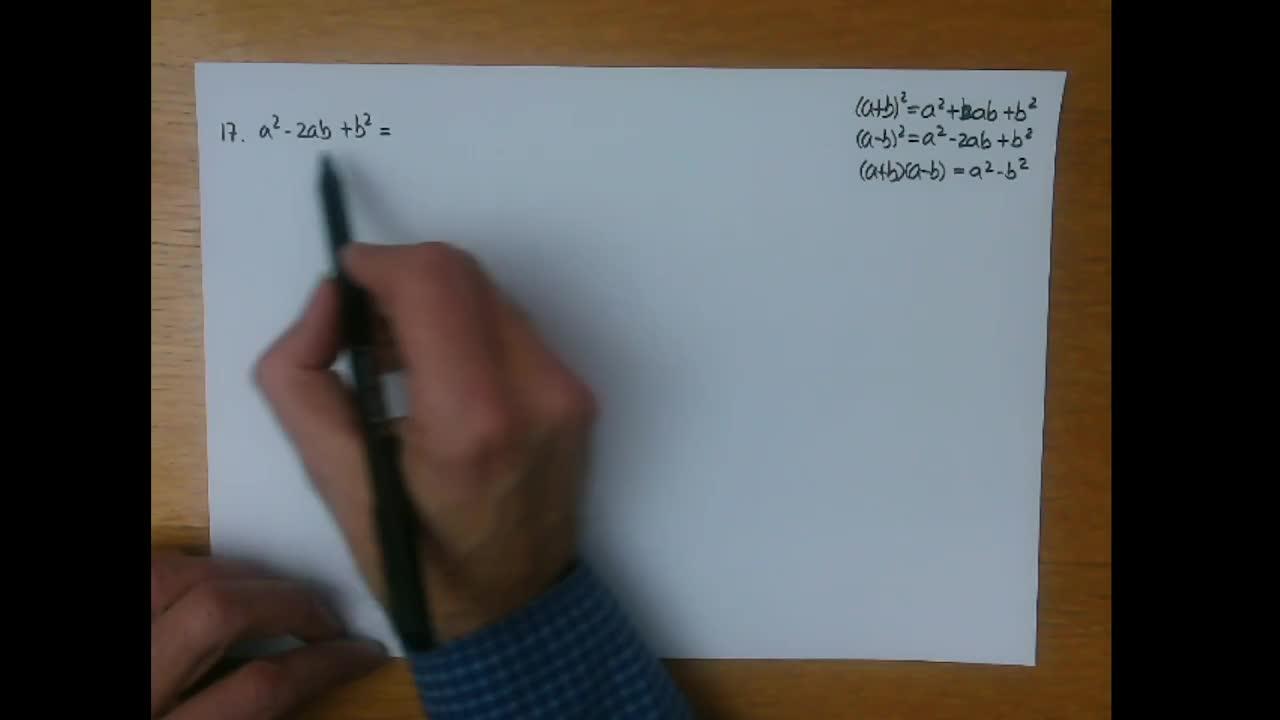 17. a² - 2ab + b² =
(a+b)² = a² + 2ab + b²
(a-b)² = a² - 2ab + b²
(a+b)(a-b) = a² - b²